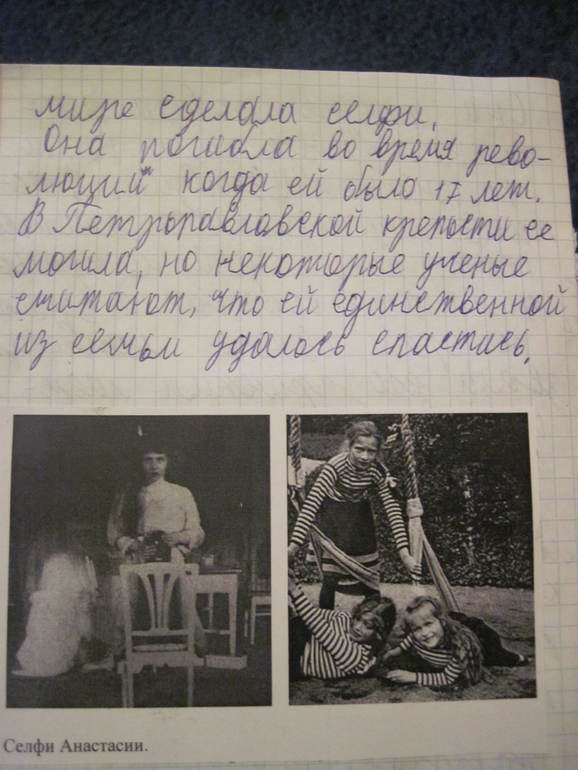 мире сделала селфи.
Она погибла во время рево-
люций" когда ей было 17 лет.
В Петропавловской крепости ее
могила, но некоторые ученые
считают, что ей единственной
из семьи удалось спастись.
Селфи Анастасии.